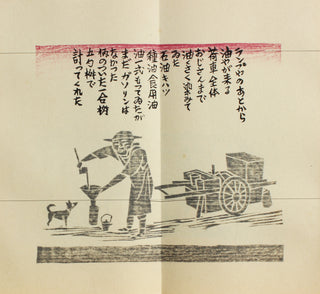 ランプやのあとから
油やが来る
荷車全体
おじさんまで
油をさく染みて
ゐた
石油キハツ
種油食用油
油一式もつてゐたが
まだガソリンは
なかつた
柄のついた一合桝
五勺桝で
計つてくれた